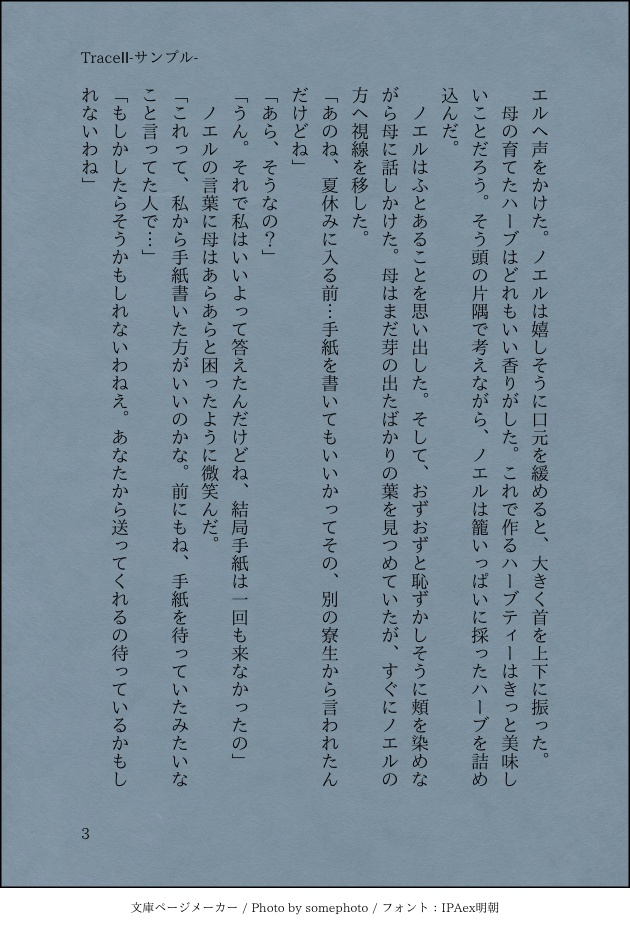 TraceⅡ-サンプル-
エルへ声をかけた。ノエルは嬉しそうに口元を緩めると、大きく首を上下に振った。
　母の育てたハーブはどれもいい香りがした。これで作るハーブティーはきっと美味し
いことだろう。そう頭の片隅で考えながら、ノエルは籠いっぱいに採ったハーブを詰め
込んだ。
　ノエルはふとあることを思い出した。そして、おずおずと恥ずかしそうに頬を染めな
がら母に話しかけた。母はまだ芽の出たばかりの葉を見つめていたが、すぐにノエルの
方へ視線を移した。
「あのね、夏休みに入る前…手紙を書いてもいいかってその、別の寮生から言われたん
だけどね」
「あら、そうなの？」
「うん。それで私はいいよって答えたんだけどね、結局手紙は一回も来なかったの」
　ノエルの言葉に母はあらあらと困ったように微笑んだ。
「これって、私から手紙書いた方がいいのかな。前にもね、手紙を待っていたみたいな
こと言ってた人で…」
「もしかしたらそうかもしれないわねえ。あなたから送ってくれるの待っているかもし
れないわね」
3
文庫ページメーカー / Photo by somephoto / フォント：IPAex明朝